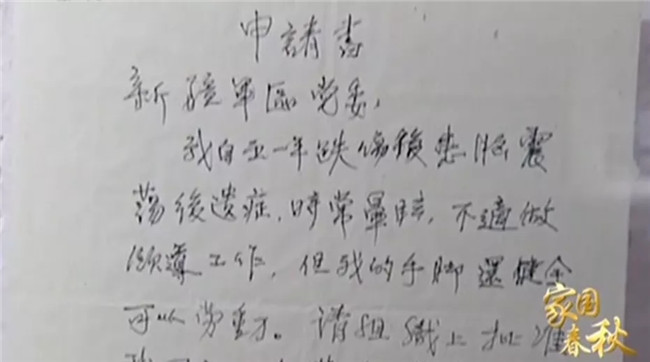 申請書
新疆軍區党委,
我自五一年跌傷後患腦震
荡後遺症,時常暈眩,不適做
領導工作,但我的手脚還健全
可以劳動。請組織上批准
家国
春秋